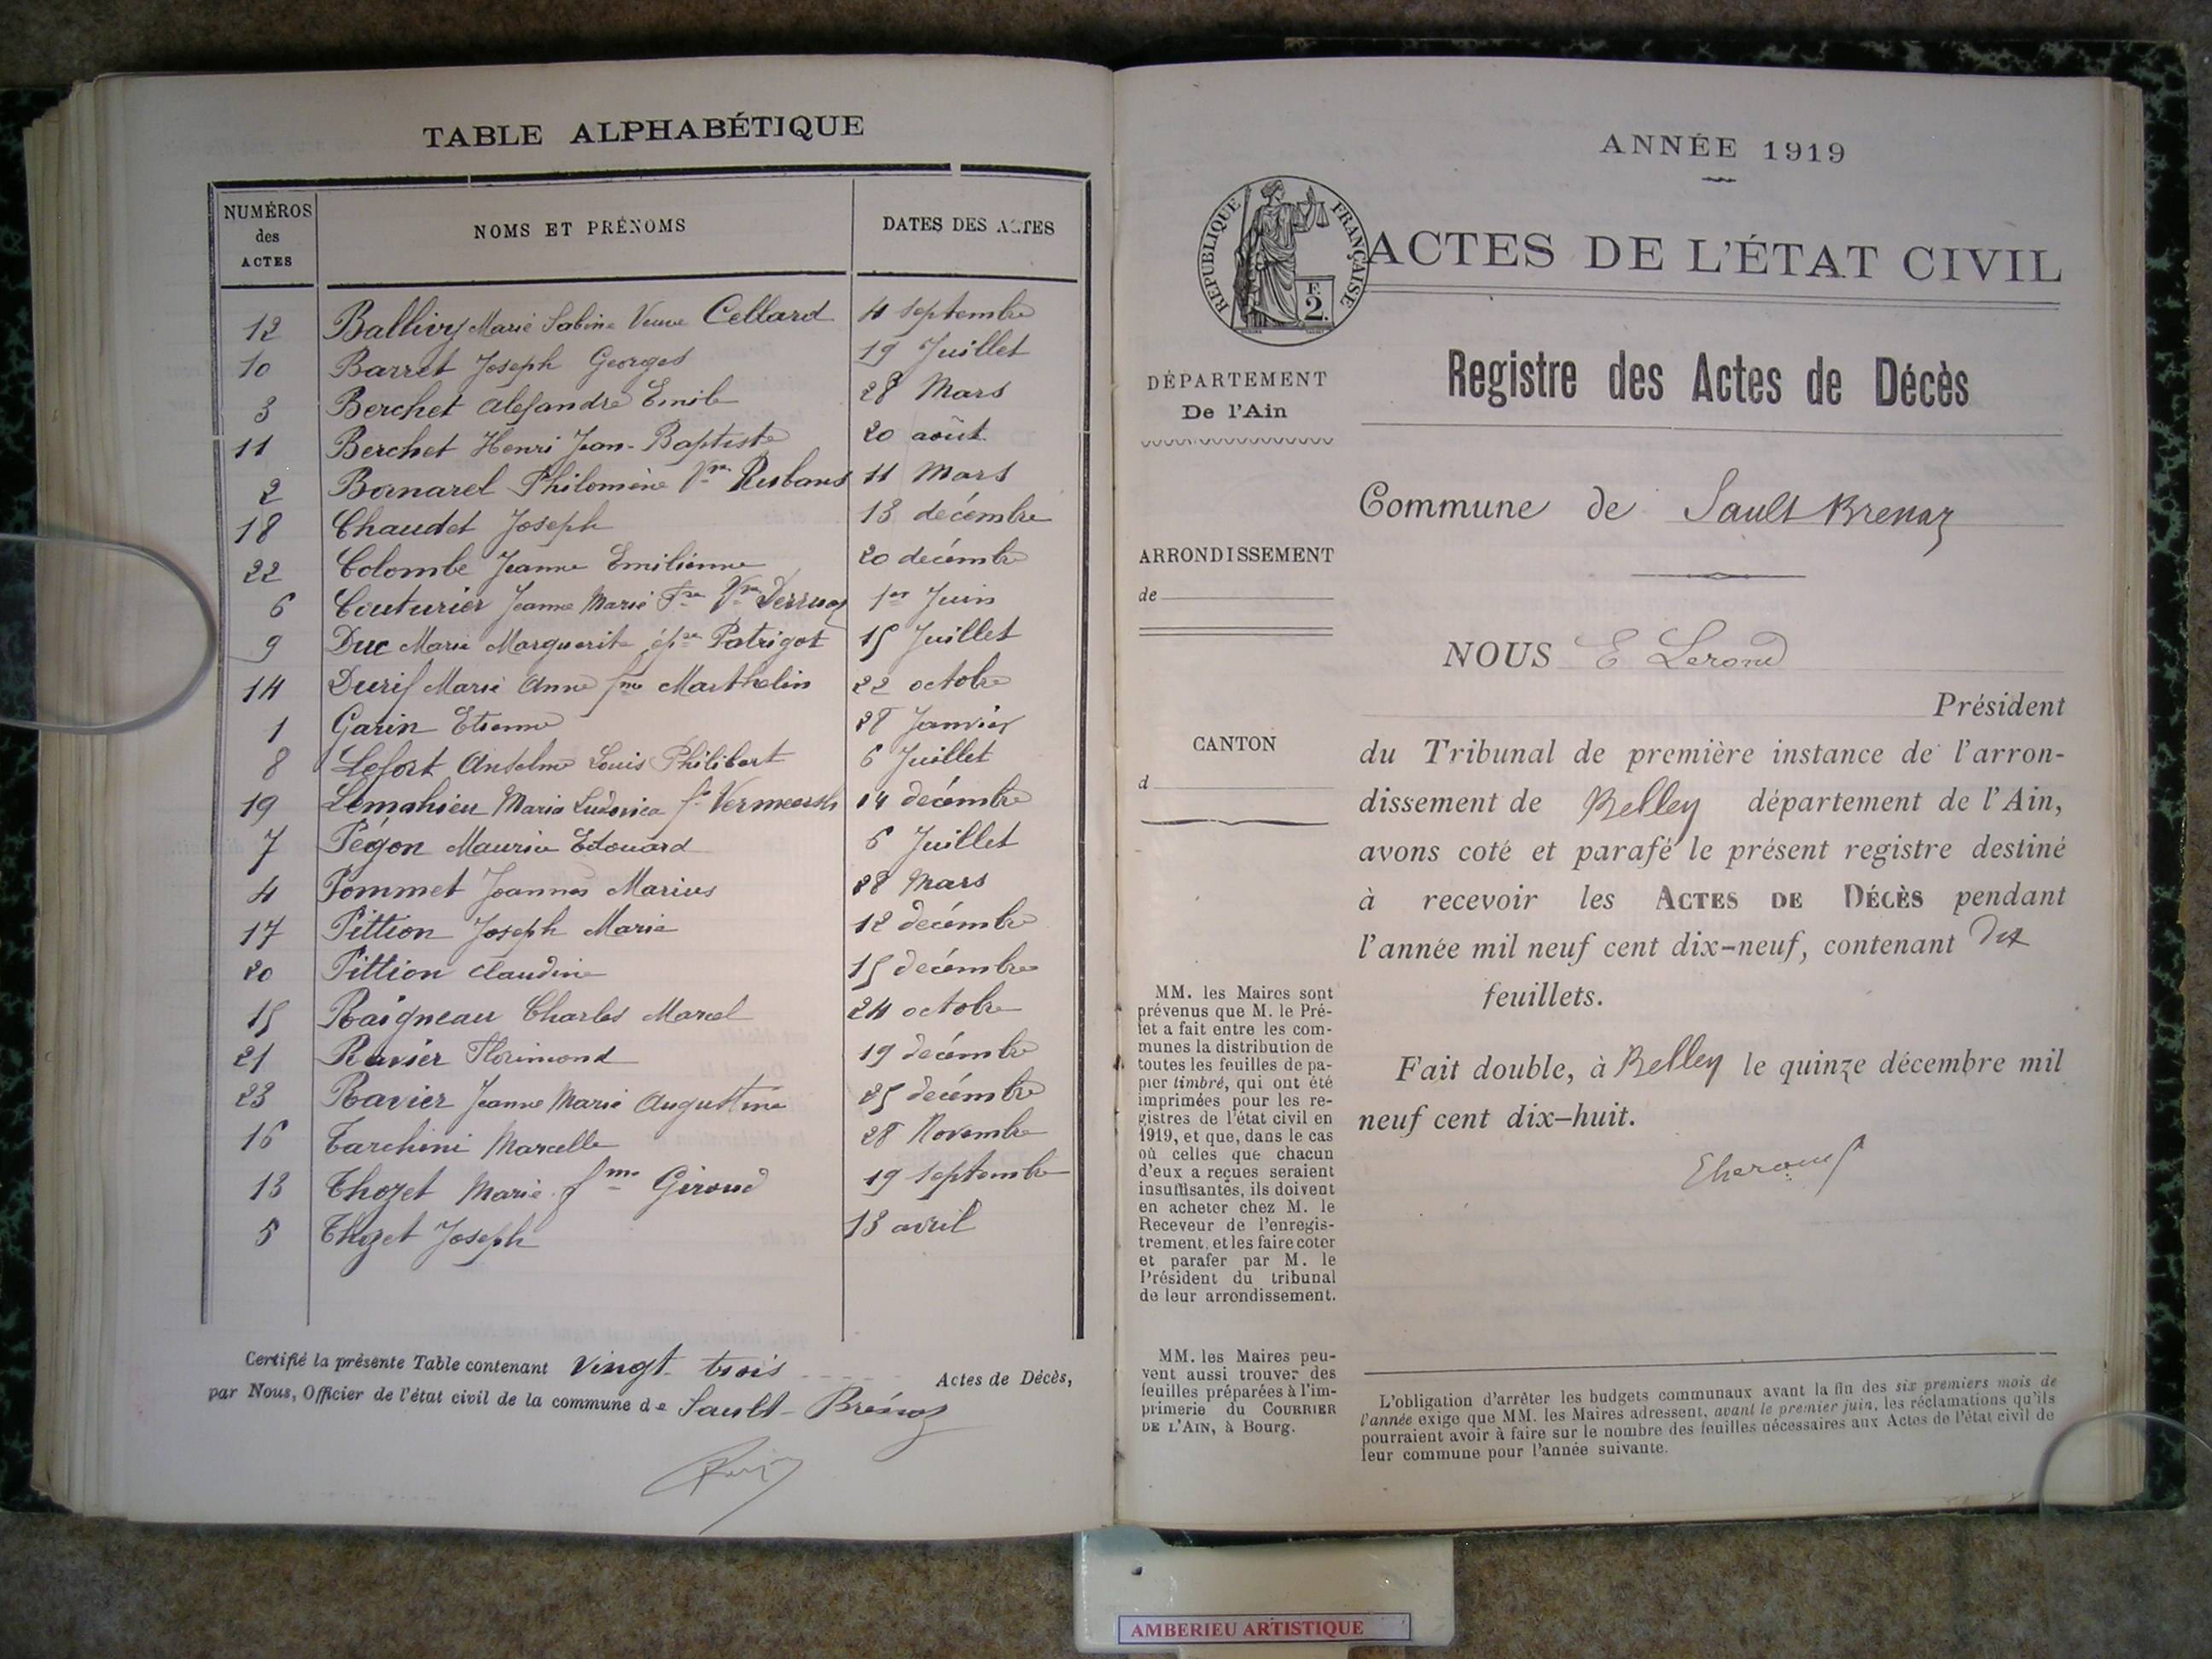 TABLE ALPHABÉTIQUE
NUMÉROS des ACTES
NOMS ET PRÉNOMS
DATES DES ACTES
12 Ballivy Marie Sabine Veuve Cellard 4 septembre
10 Barret Joseph Georges 19 Juillet
3 Berchet Alexandre Emile 28 Mars
11 Berchet Henri Jean-Baptiste 20 août
2 Bornarel Philomène Vve 11 Mars
18 Chaudet Joseph 13 décembre
22 Colombe Jeanne Emilienne 20 décembre
6 Couturier Jeanne Marie 1er Juin
9 Duc Marie Marguerite épse Patrigot 15 Juillet
14 Durif Marie Anne fme Marthelin 22 octobre
1 Garin Etienne 28 Janvier
8 Lefort Anselme Louis Philibert 6 Juillet
19 Lemahieu Maria Ludovica fe Vermeersh 14 décembre
7 Pégon Maurice Edouard 6 Juillet
4 Pommet Joannes Marius 28 Mars
17 Pittion Joseph Marie 12 decémbre
20 Pittion Claudine 15 decémbre
15 Raigneau Charles Marcel 24 octobre
21 Ravier Florimond 19 decémbre
23 Ravier Jeanne Marie Augustine 25 decémbre
16 Tarchini Marcelle 28 Novembre
13 Thozet Marie fme Giroud 19 septembre
5 Thozet Joseph 13 avril
Certifié la présente Table contenant vingt-trois Actes de Décès,
par Nous, Officier de l'état civil de la commune de Sault-Brénaz
ANNÉE 1919
RÉPUBLIQUE FRANÇAISE
F. 2.
ACTES DE L'ÉTAT CIVIL
DÉPARTEMENT
De l'Ain
ARRONDISSEMENT
de
CANTON
d
MM. les Maires sont
prévenus que M. le Pré-
fet a fait entre les com-
munes la distribution de
toutes les feuilles de pa-
pier timbré, qui ont été
imprimées pour les re-
gistres de l'état civil en
1919, et que, dans le cas
où celles que chacun
d'eux a reçues seraient
insuffisantes, ils doivent
en acheter chez M. le
Receveur de l'enregis-
trement, et les faire coter
et parafer par M. le
Président du tribunal
de leur arrondissement.
MM. les Maires peu-
vent aussi trouver des
feuilles préparées à l'im-
primerie du COURRIER
DE L'AIN, à Bourg.
Registre des Actes de Décès
Commune de Sault Brenaz
NOUS E Lerond
Président
du Tribunal de première instance de l'arron-
dissement de Belley département de l'Ain,
avons coté et parafé le présent registre destiné
à recevoir les ACTES DE DÉCÈS pendant
l'année mil neuf cent dix-neuf, contenant
feuillets.
Fait double, à Belley le quinze décembre mil
neuf cent dix-huit.
L'obligation d'arrêter les budgets communaux avant la fin des six premiers mois de
l'année exige que MM. les Maires adressent, avant le premier juin, les réclamations qu'ils
pourraient avoir à faire sur le nombre des feuilles nécessaires aux Actes de l'état civil de
leur commune pour l'année suivante.
AMBERIEU ARTISTIQUE